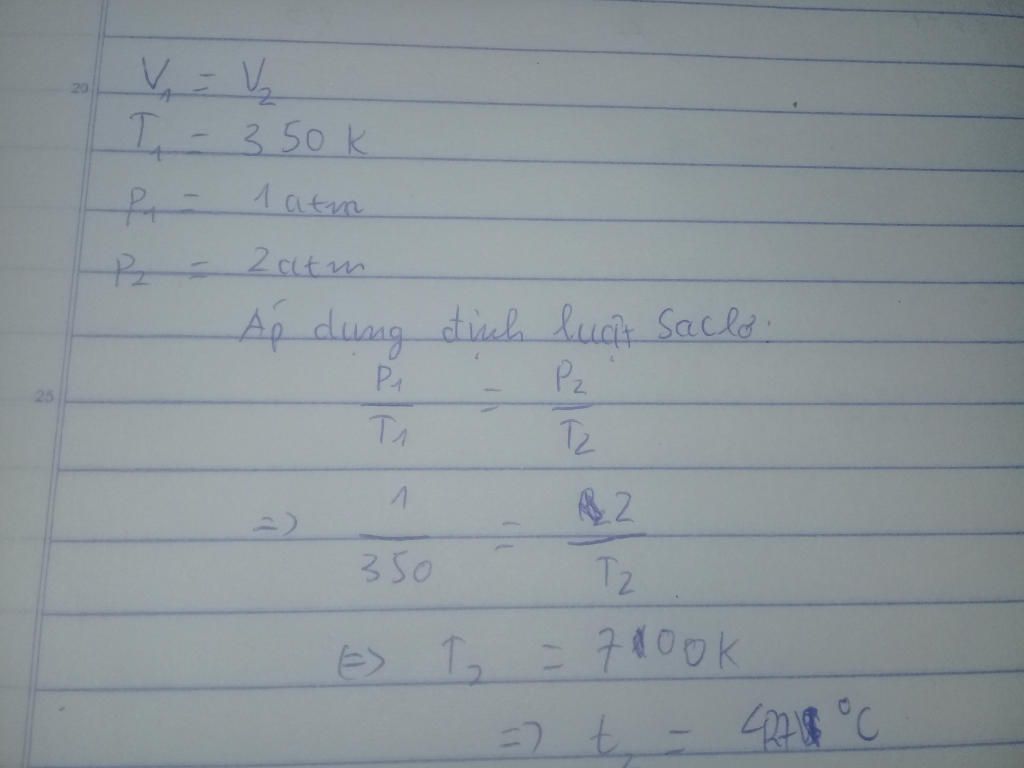 20
V₁ = V₂
T₁ = 350 K
P₁ = 1 atm
P₂ = 2 atm
Áp dụng định luật Saclơ:
25
P₁/T₁ = P₂/T₂
=> 1/350 = 2/T₂
<=> T₂ = 700 K
=> t₂ = 427 °C